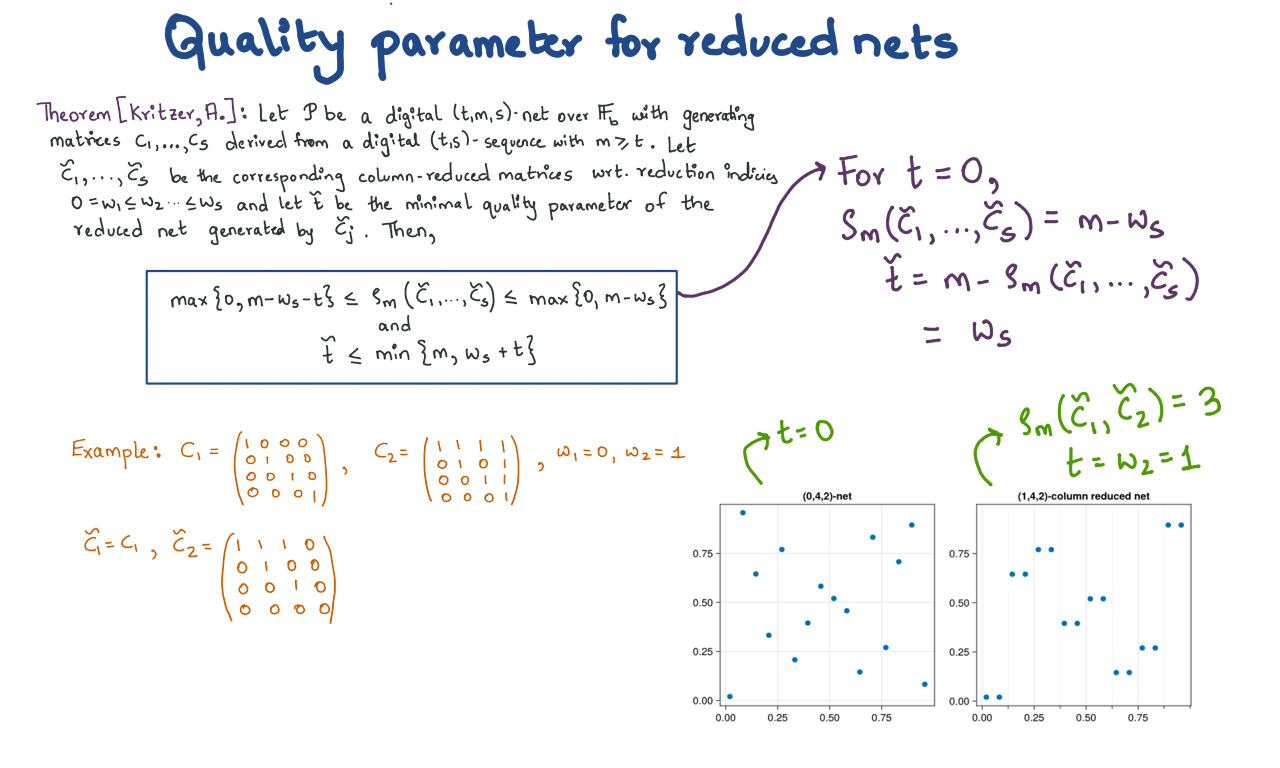 Quality parameter for reduced nets
Theorem [Kritzer, A.]: Let P be a digital (t,m,s)-net over 𝔽_b with generating
matrices C₁,...,C_s derived from a digital (t,s)-sequence with m ≥ t. Let
C̆₁,...,C̆_s be the corresponding column-reduced matrices wrt. reduction indicies
0 = w₁ ≤ w₂ ... ≤ w_s and let t̆ be the minimal quality parameter of the
reduced net generated by C̆_j. Then,
max{0, m-w_s-t} ≤ ρ_m(C̆₁,...,C̆_s) ≤ max{0, m-w_s}
and
t̆ ≤ min{m, w_s + t}
For t = 0,
ρ_m(C̆₁,...,C̆_s) = m-w_s
t̆ = m - ρ_m(C̆₁,...,C̆_s)
= w_s
Example: C₁ = (1 0 0 0
0 1 0 0
0 0 1 0
0 0 0 1), C₂ = (1 1 1 1
0 1 0 1
0 0 1 1
0 0 0 1), w₁=0, w₂=1
C̆₁ = C₁, C̆₂ = (1 1 1 0
0 1 0 0
0 0 1 0
0 0 0 0)
t=0
ρ_m(C̆₁, C̆₂) = 3
t = w₂ = 1
(0,4,2)-net
0.75
0.50
0.25
0.00
0.00 0.25 0.50 0.75
(1,4,2)-column reduced net
0.75
0.50
0.25
0.00
0.00 0.25 0.50 0.75